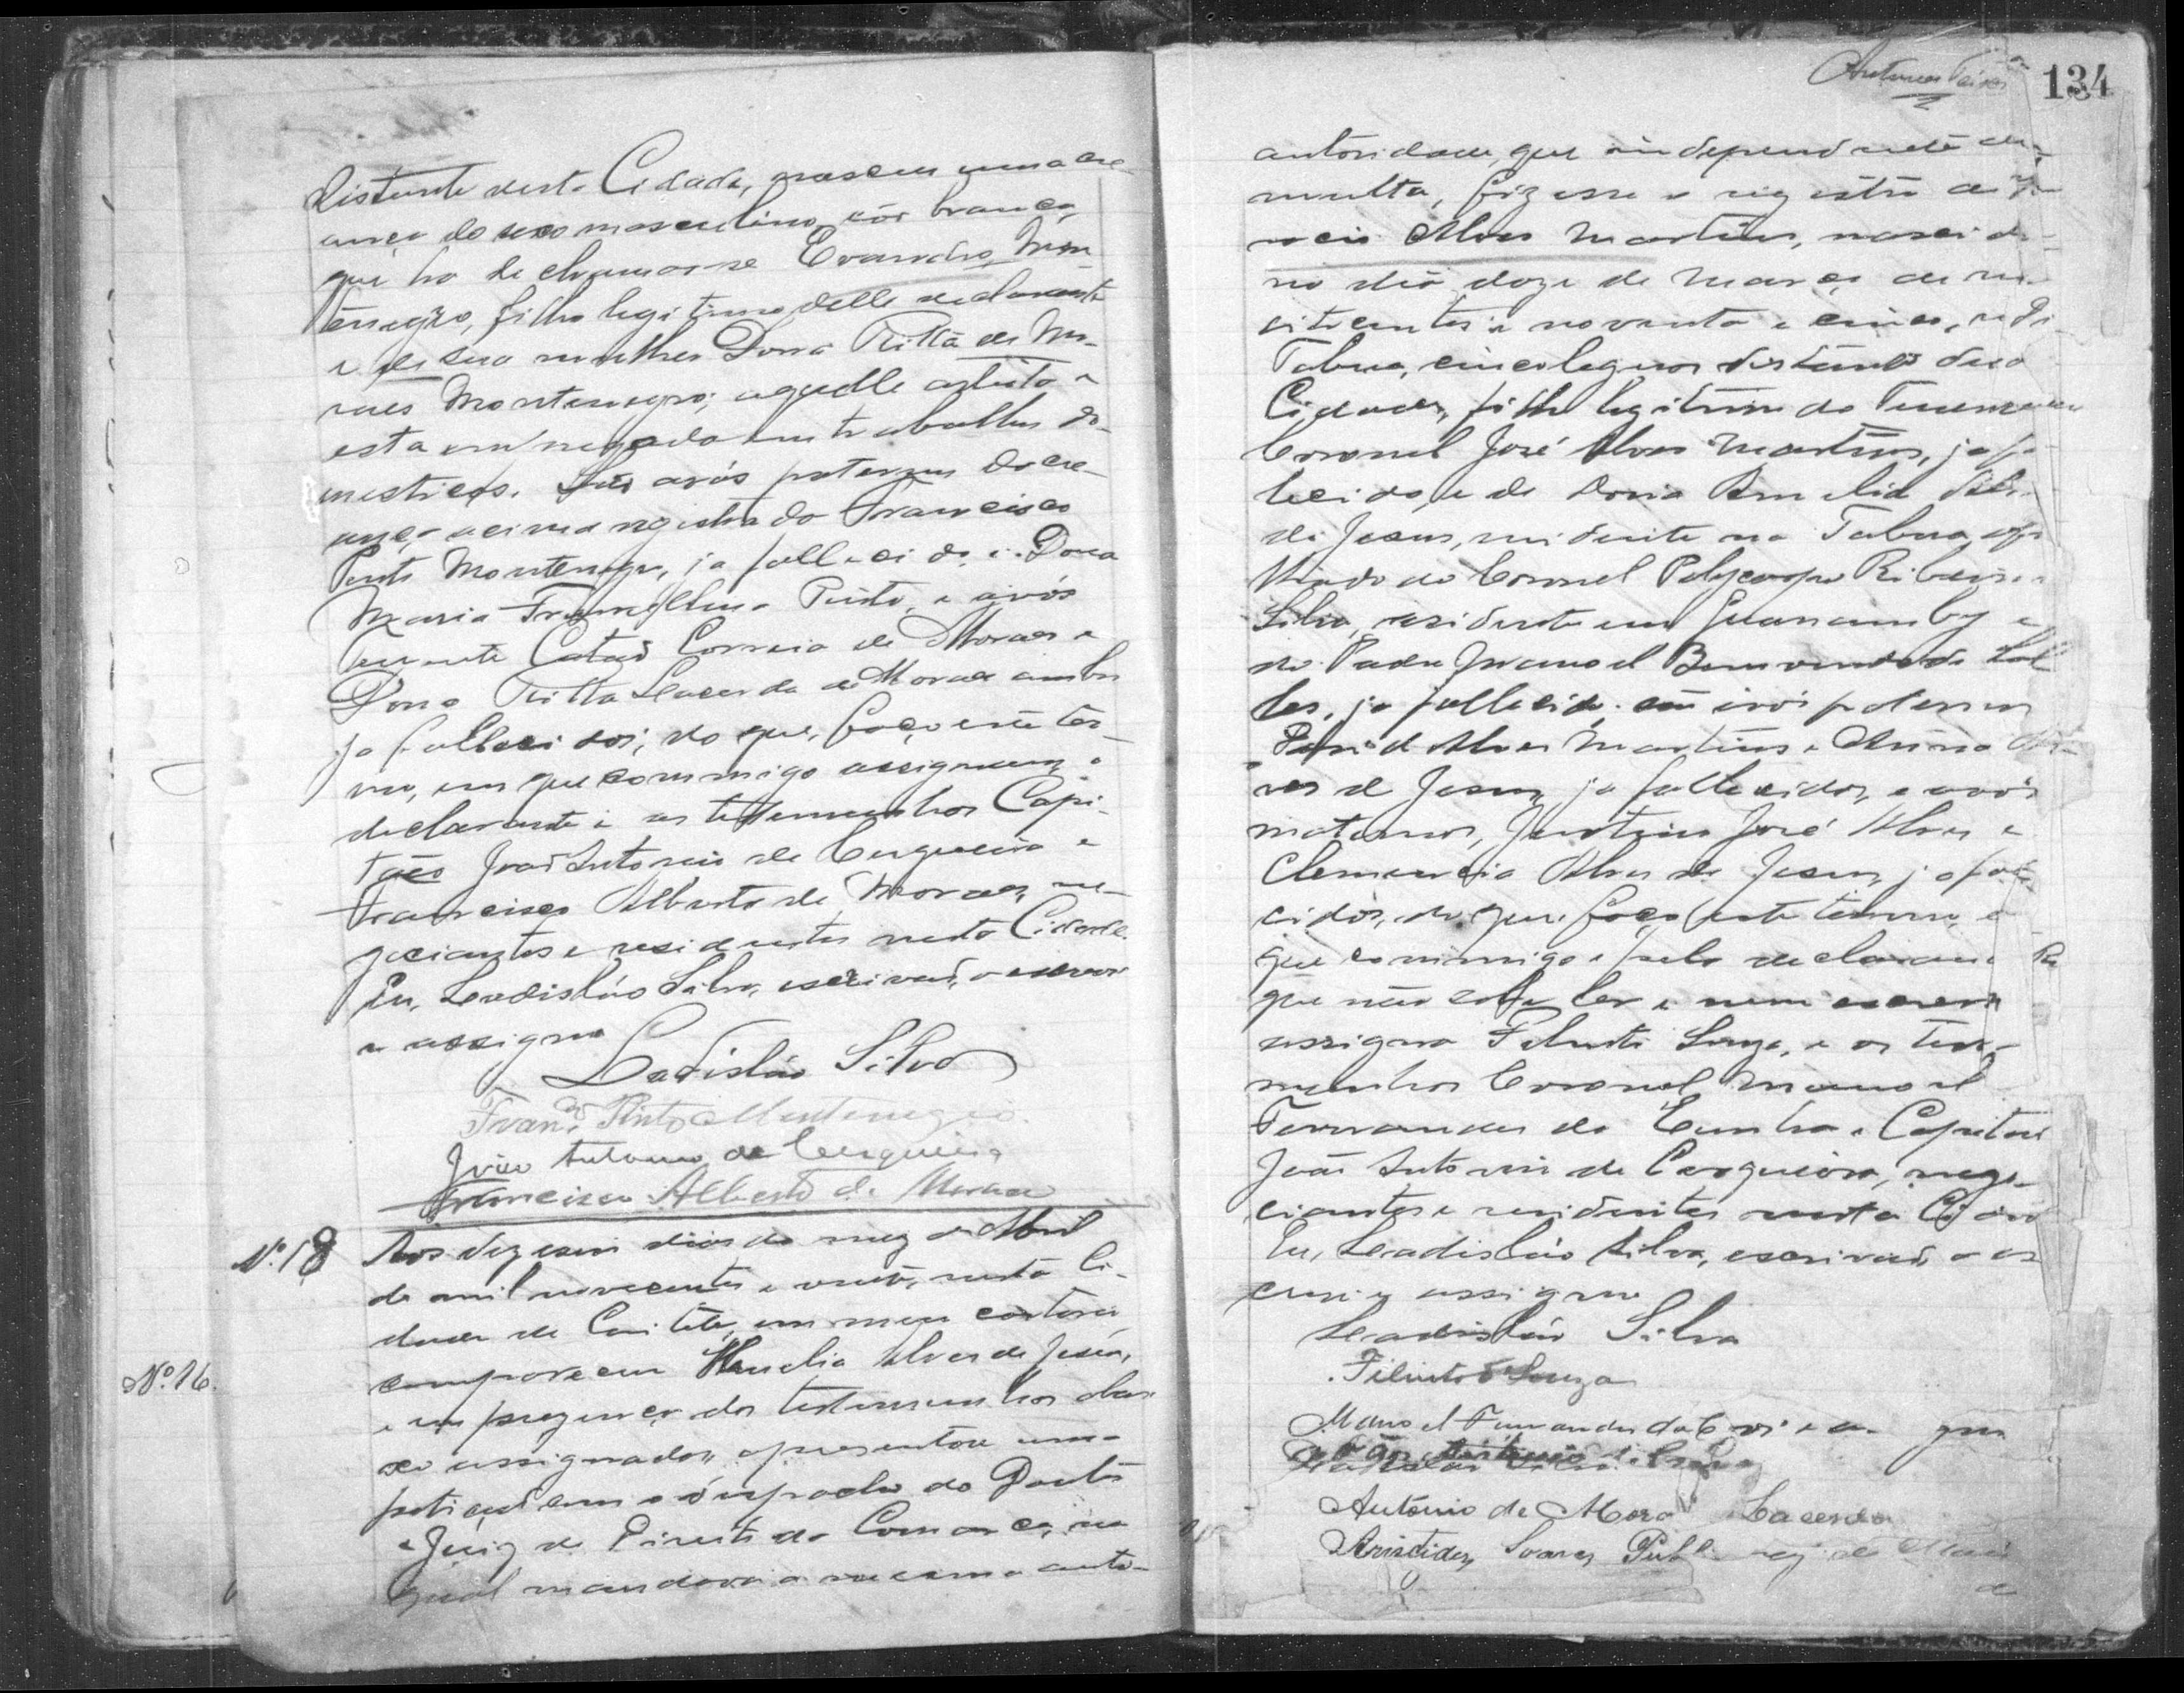 distante desta Cidade, nasceu uma cre-
ança do sexo masculino, côr branca,
que ha de chamar-se Evandro Mon-
tenegro, filho legitimo delle declarante
e de sua mulher Dona Ritta de Mo-
raes Montenegro; aquelle artista e
esta empregada em trabalhos do-
mesticos. São avós paternos da cre-
ança acima registrada Francisco
Pinto Montenegro, ja fallecido e Dona
Maria Pinto, e avós
Tenente Catão Correia de Moraes e
Dona Ritta Lacerda de Moraes ambos
ja fallecidos; do que, faço este ter-
mo, em que commigo assignam o
declarante e as testemunhas Capi-
tães João Antonio de Cerqueira e
Francisco Alberto de Moraes, ne-
gociantes e residentes nesta Cidade.
Eu, Leadisláo Silva, escrivão, o escrevi
e assigno
Ladisláo Silva
Franco Pinto Montenegro
João Antonio de Cerqueira
Francisco Alberto de Moraes
Nº 18 Aos dezeseis dias do mez de Abril
de mil novecentos e vinte, nesta Ci-
dade de Caiteté, em meu cartorio
compareceu Amelia Alves de Jesus,
Nº 16.
e em prezença das testemunhas abai-
xo assignadas, apresentou uma
petição com o despacho do Doutor
Juiz de Direito da Comarca, na
qual mandava a mesma auto-
134
autoridade, que independente de
multa, fizesse o registro de
Alves Martins, nascido
no dia doze de Março de mil
oitocentos e noventa e cinco, na
Tabua, cinco leguas distante desta
Cidade, filho legitimo do Tenente
Coronel José Alves Martins, ja fal-
lecido, e de Dona Amelia
de Jesus, residente na Tabua, afi-
lhado do Coronel Polycarpo Ribeiro
Silva, residente em Guanamby e
do Padre Manoel Bemvindo de Sal-
les, ja fallecido. São avós paternos
Alves Martins e Anna
de Jesus, ja fallecidos, e avós
maternos, José Alves e
Clemencia Alves de Jesus, ja falle-
cidos, do que, faço este termo, em
que commigo e pelo declarante
que não sabe ler e nem escrever
assigna Felinto Souza, e as teste-
munhas Coronel Manoel
Fernandes da Cunha e Capitão
João Antonio de Cerqueira, nego-
ciantes e residentes nesta Cidade
Eu, Leadisláo Silva, escrivão o es-
crevi e assigno
Leadisláo Silva
Filinto Souza
Manoel Fernandes da
Antônio de Lacerda
Aristides Soares